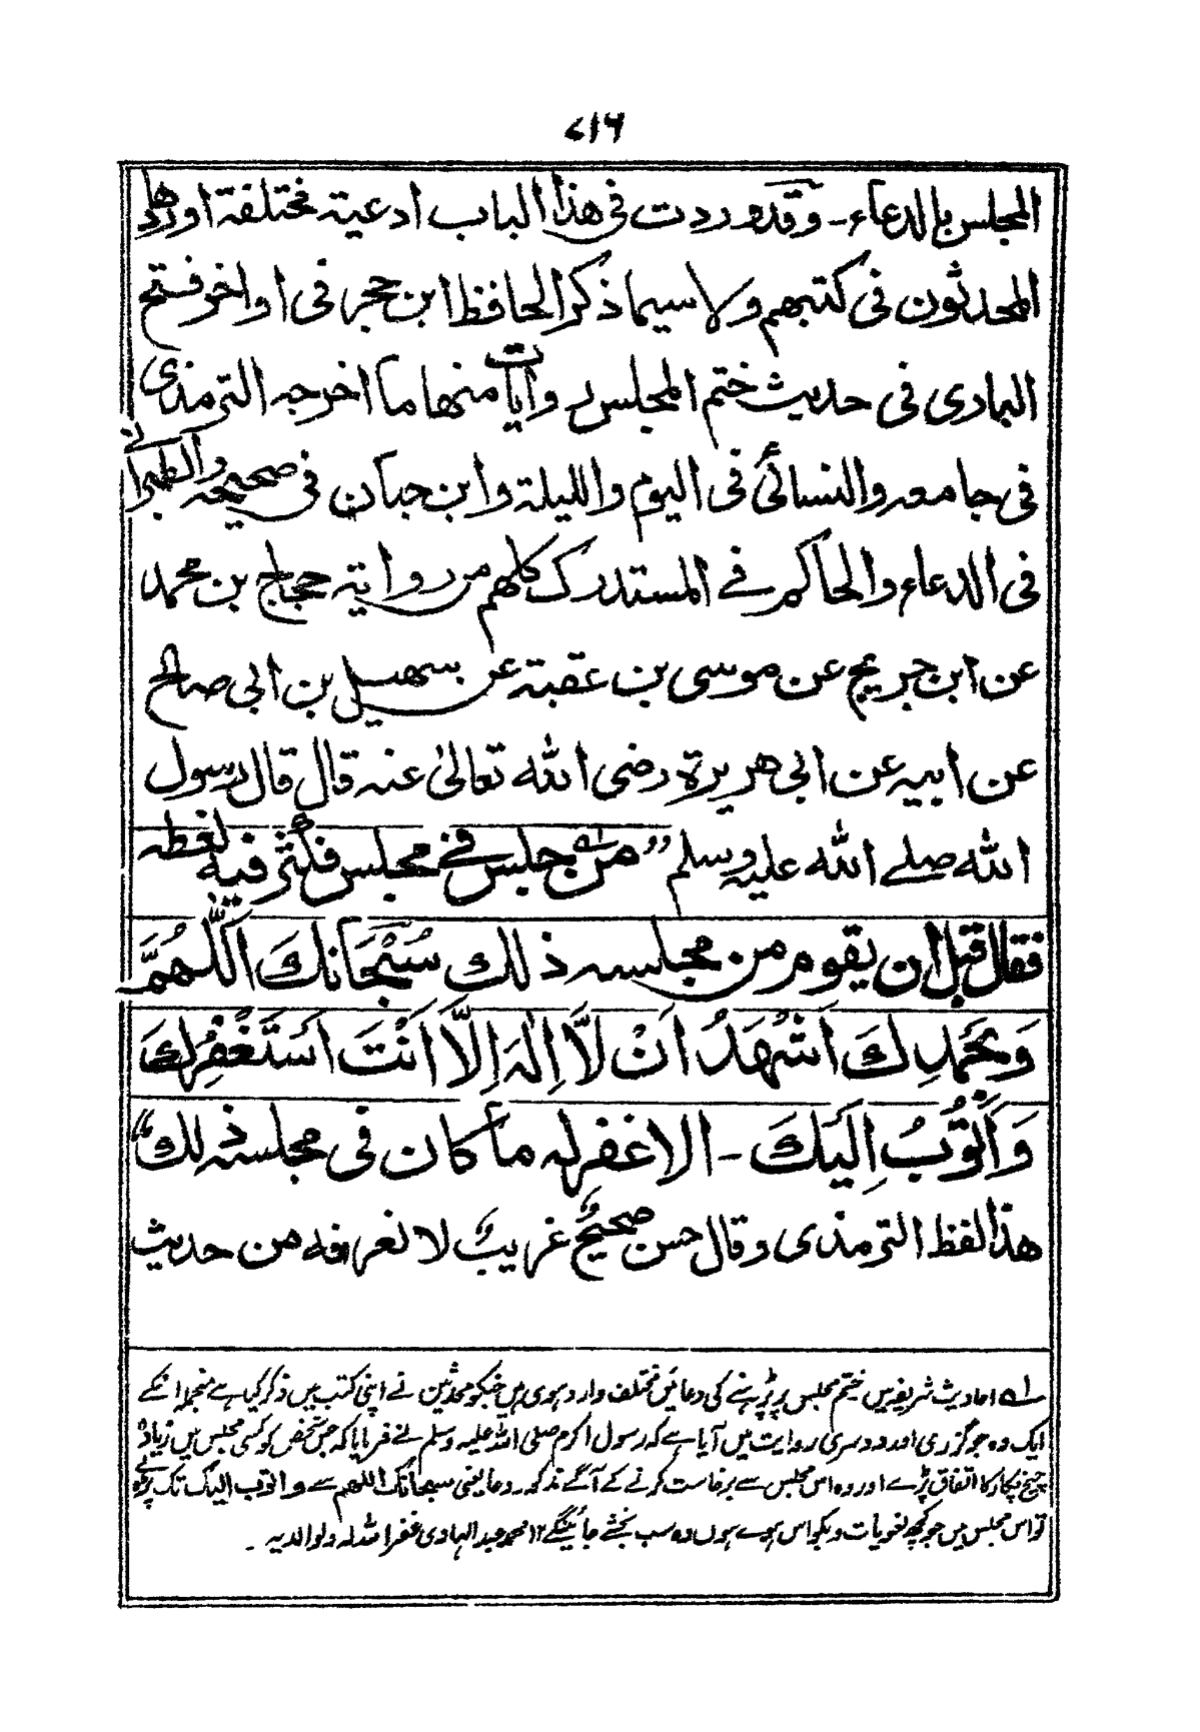 ۷۱۶
المجلس بالدعاء۔ وقد وردت فى هذا الباب ادعية مختلفة اوردها
المحدثون فى كتبهم ولا سيما ذكر الحافظ ابن حجر فى اواخر فتح
البارى فى حديث ختم المجلس روايات منها ما اخرجه الترمذى
فى جامعه والنسائى فى اليوم والليلة وابن حبان فى صحيحه والطبرانى
فى الدعاء والحاكم فے المستدرك كلهم من رواية حجاج بن محمد
عن ابن جريج عن موسى بن عقبة عن سهيل بن ابى صالح
عن ابيه عن ابى هريرة رضى الله تعالىٰ عنه قال قال رسول
الله صلے الله عليه وسلم ”من جلس فے مجلس فكثر فيه لغطه
فقال قبل ان يقوم من مجلسه ذلك سُبْحَانَكَ اَللّٰهُمَّ
وَبِحَمْدِكَ اَشْهَدُ اَنْ لَّا اِلٰهَ اِلَّا اَنْتَ اَسْتَغْفِرُكَ
وَاَتُوْبُ اِلَيْكَ ـ الا غفر له ما كان فى مجلسه ذلك“
هذا لفظ الترمذى وقال حسن صحيحٌ غريبٌ لا نعرفه من حديث
لہ احادیث شریفہ میں ختم مجلس پر پڑہنے کی دعائیں مختلف وارد ہوی ہیں جنکو محدثین نے اپنی کتب میں ذکر کیا ہے منجملہ انکے
ایک وہ جو گزری اور دوسری روایت میں آیا ہے کہ رسول اکرم صلی اللہ علیہ وسلم نے فرمایا کہ جس شخص کو کسی مجلس میں زیادہ
چیخ پکار کا اتفاق پڑے اور وہ اس مجلس سے برخاست کرنے کے آگے مذکورہ دعا یعنی سبحانک اللھم سے واتوب الیک تک پڑہے
تو اس مجلس میں جو کچھ لغویات و بکواس ہوے ہوں وہ سب بخشے جائینگے ۱۲ محمد عبد الہادی غفر اللہ لہ ولوالدیہ ۔